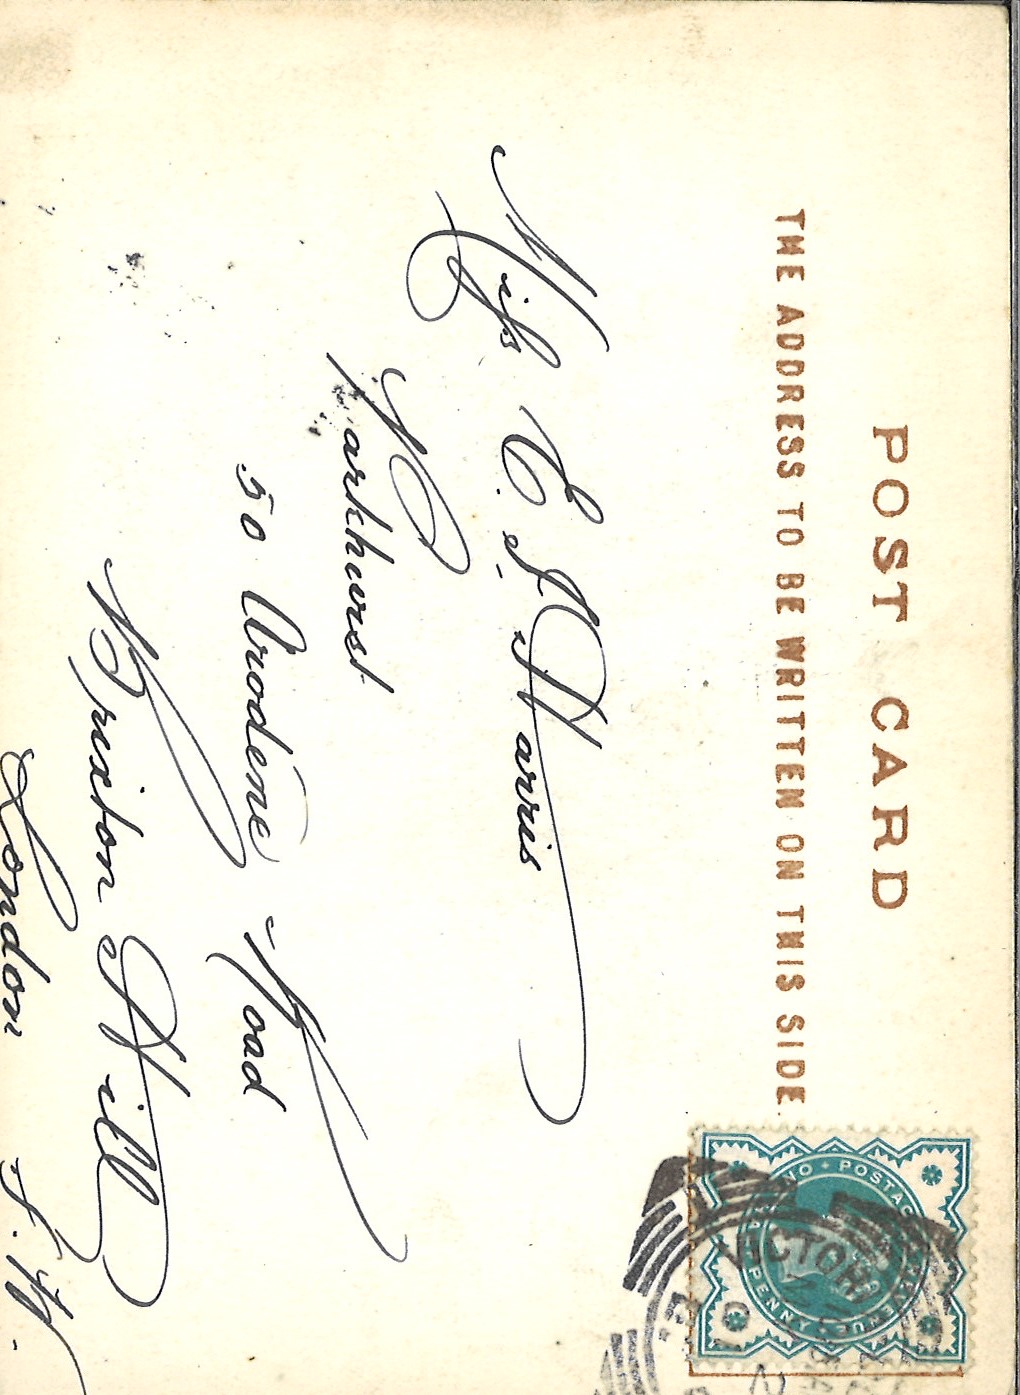 POST CARD
THE ADDRESS TO BE WRITTEN ON THIS SIDE
POSTAGE REVENUE
PENNY
VICTORIA
Miss E. S. Harris
Parkhurst
50 Arodene Road
Brixton Hill
London S. W.